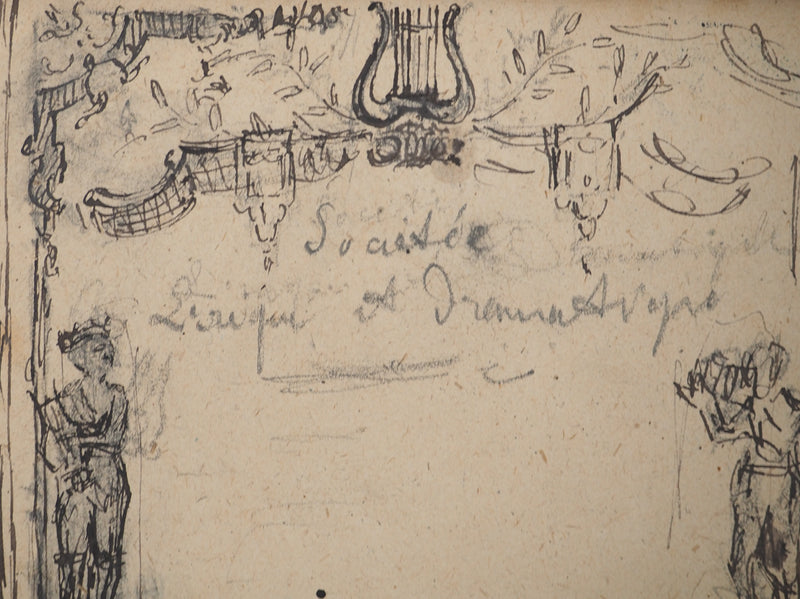 Sociétée
Lirique et Dramatique